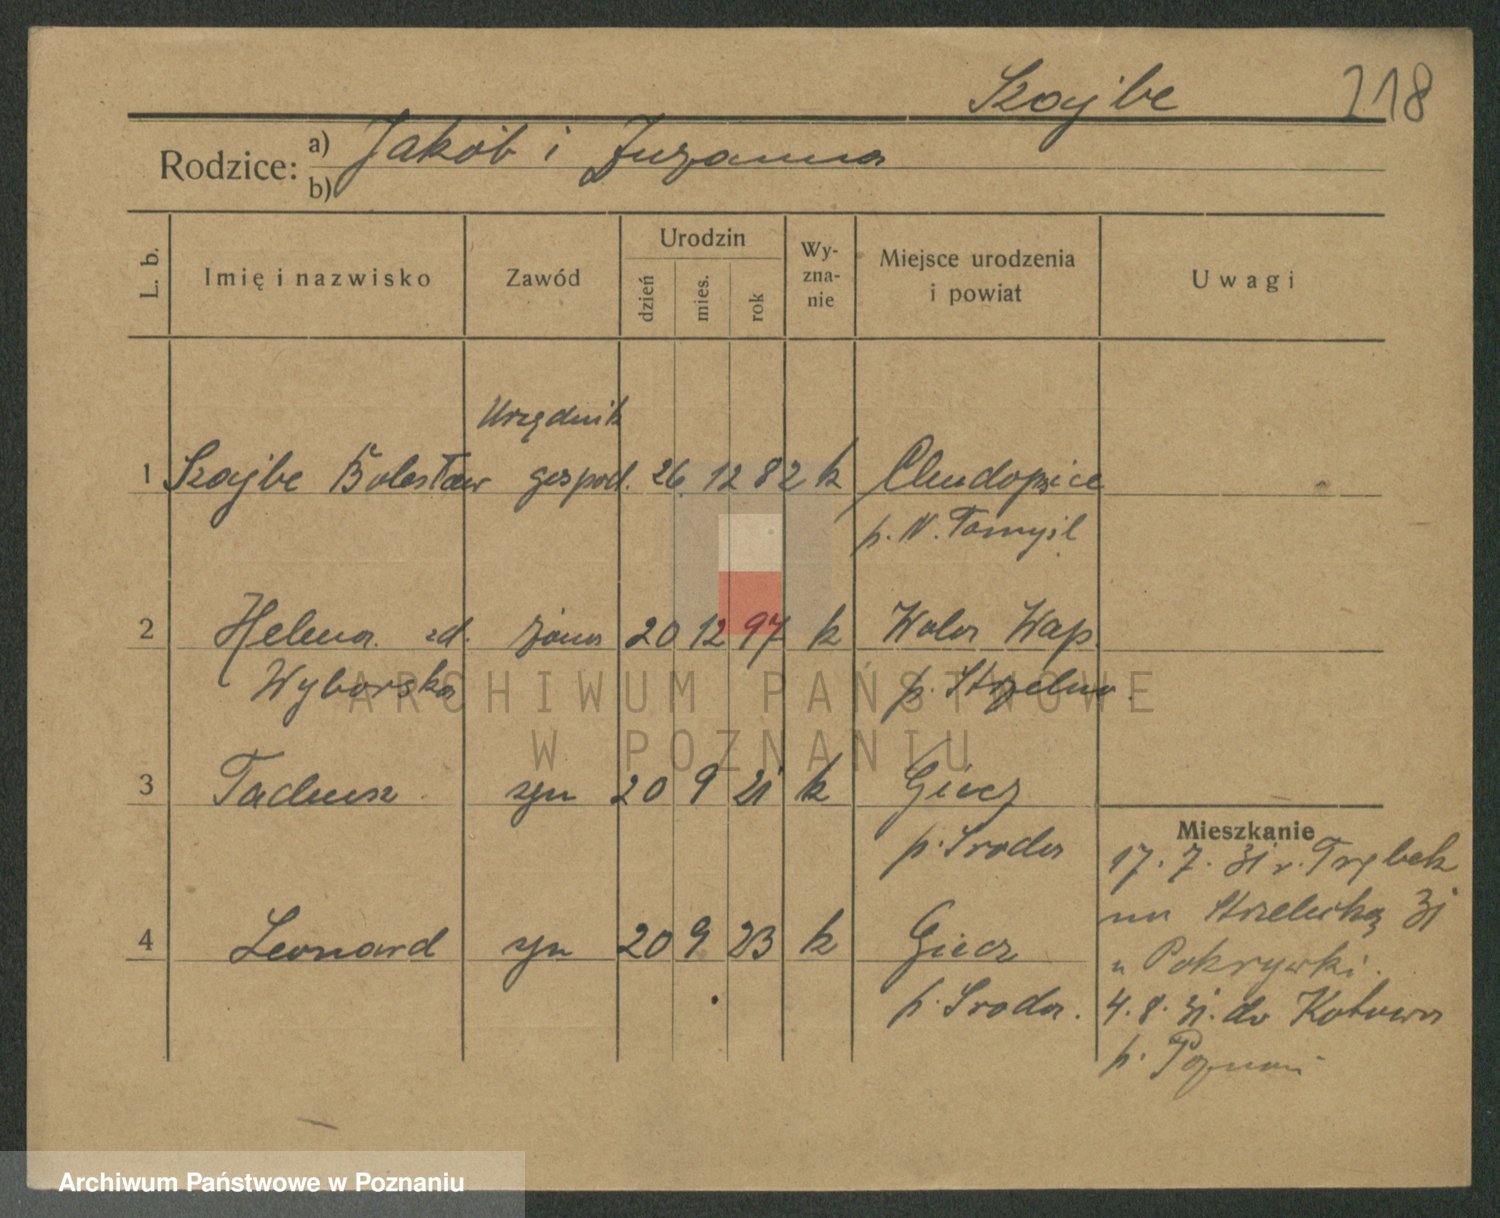 Szajbe 218
Rodzice: a) Jakób i Zuzanna
b)
L. b. Imię i nazwisko Zawód Urodzin dzień mies. rok Wy-zna-nie Miejsce urodzenia i powiat Uwagi
Urzędnik
1 Szajbe Bolesław gospod. 26 12 82 k
p. N. Tomyśl
2 Helena zd. żona 20 12 97 k Wola Wap.
Wyborska p. Strzelno.
ARCHIWUM PAŃSTWOWE
W POZNANIU
3 Tadeusz syn 20 9 21 k Giecz
p. Sroda
Mieszkanie
17. 7. 31 r. Trębek
na Strzelecką 31
u Pokrywki.
4 Leonard syn 20 9 23 k Giecz
p. Sroda.
4. 8. 31. do Kotowa
p. Poznań
Archiwum Państwowe w Poznaniu